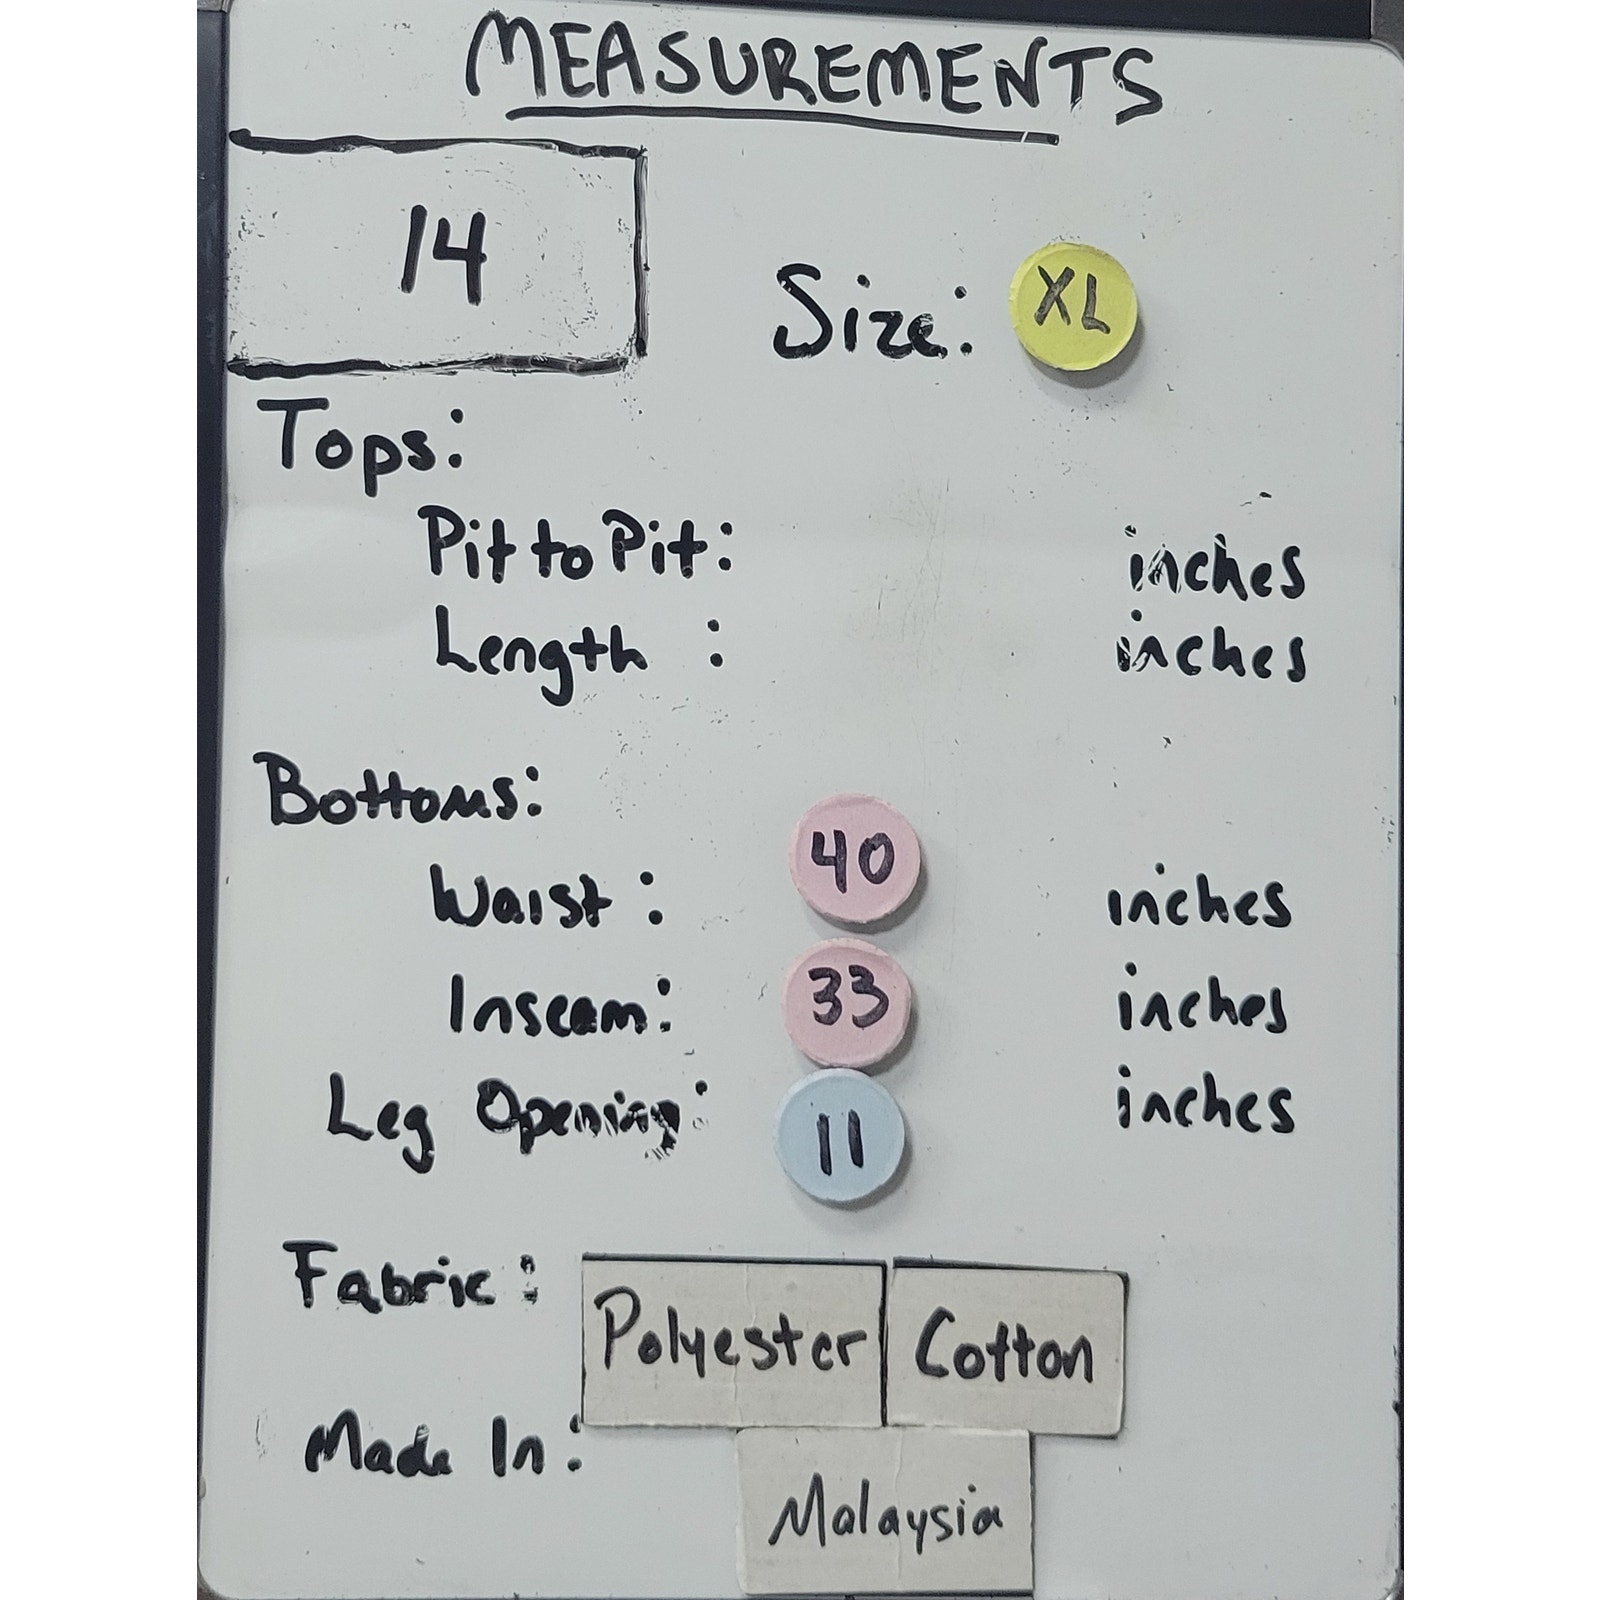 MEASUREMENTS
14
Size: XL
Tops:
Pit to Pit: inches
Length : inches
Bottoms:
Waist : 40 inches
Inseam: 33 inches
Leg Opening: 11 inches
Fabric : Polyester Cotton
Made In : Malaysia